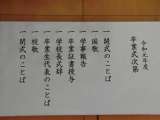 令和元年度
卒業式次第
一 開式のことば
一 国歌
一 学事報告
一 卒業証書授与
一 学校長式辞
一 卒業生代表のことば
一 校歌
一 閉式のことば